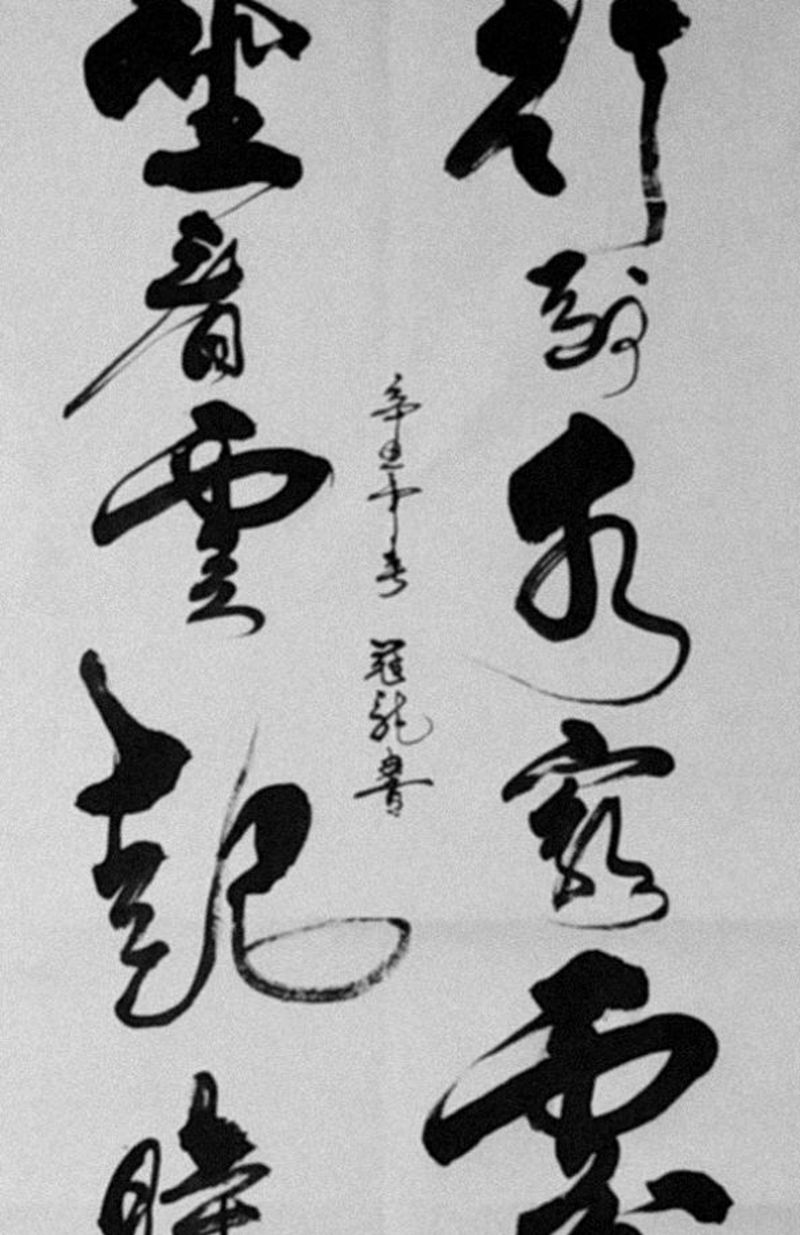 行到水窮處
辛丑年春 龍書
坐看雲起時